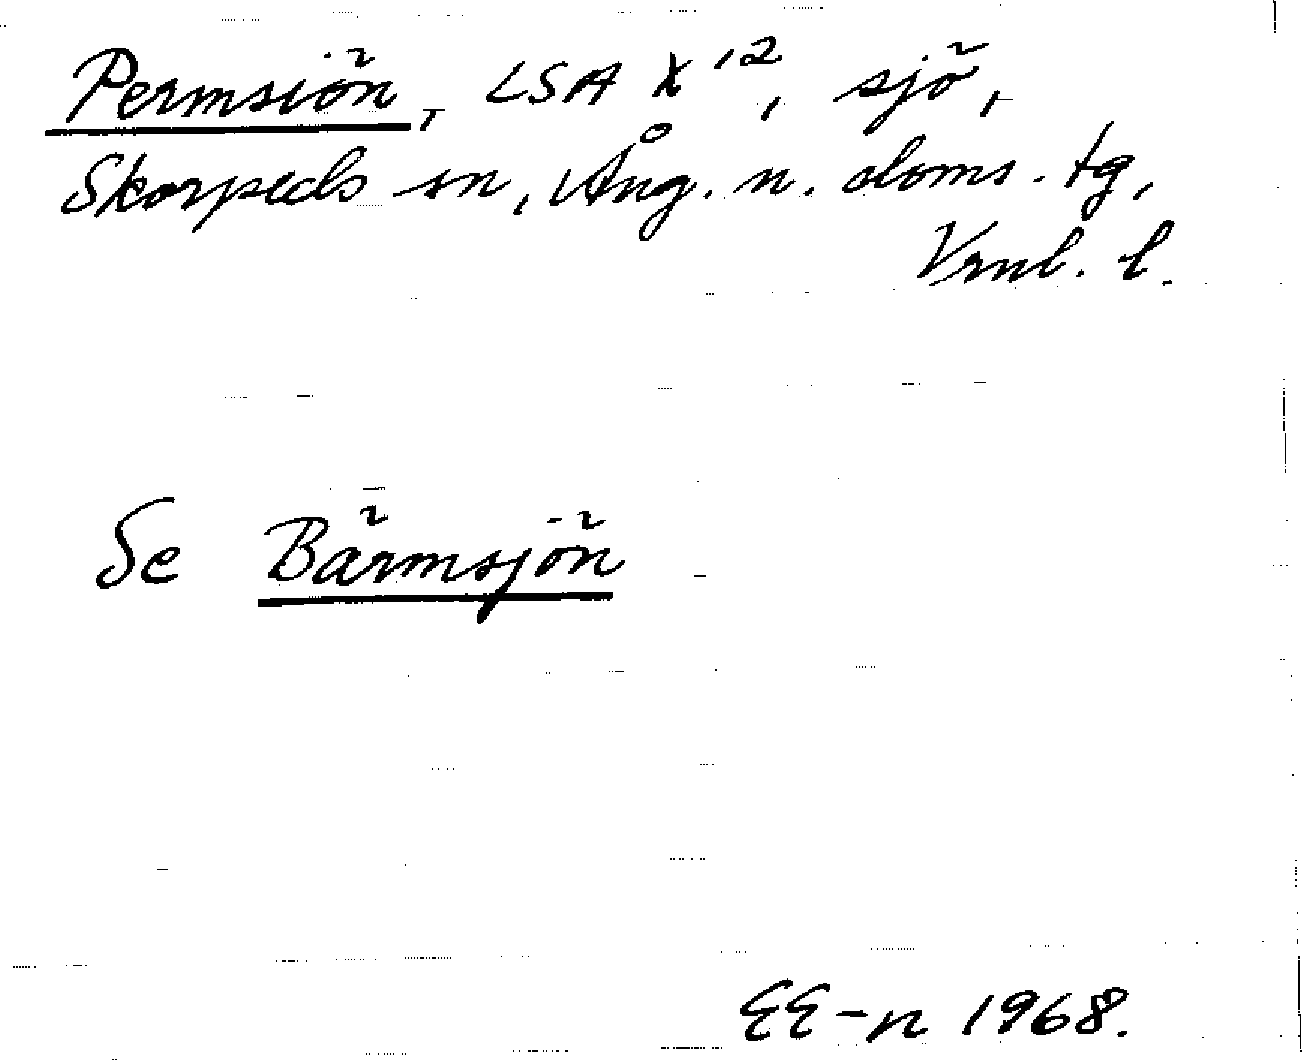 Permsiön, LSA X 12, sjö,
Skorpeds sn, Ång. n. doms. tg,
Vrnl. l.
Se Bärmsjön
EE-n 1968.